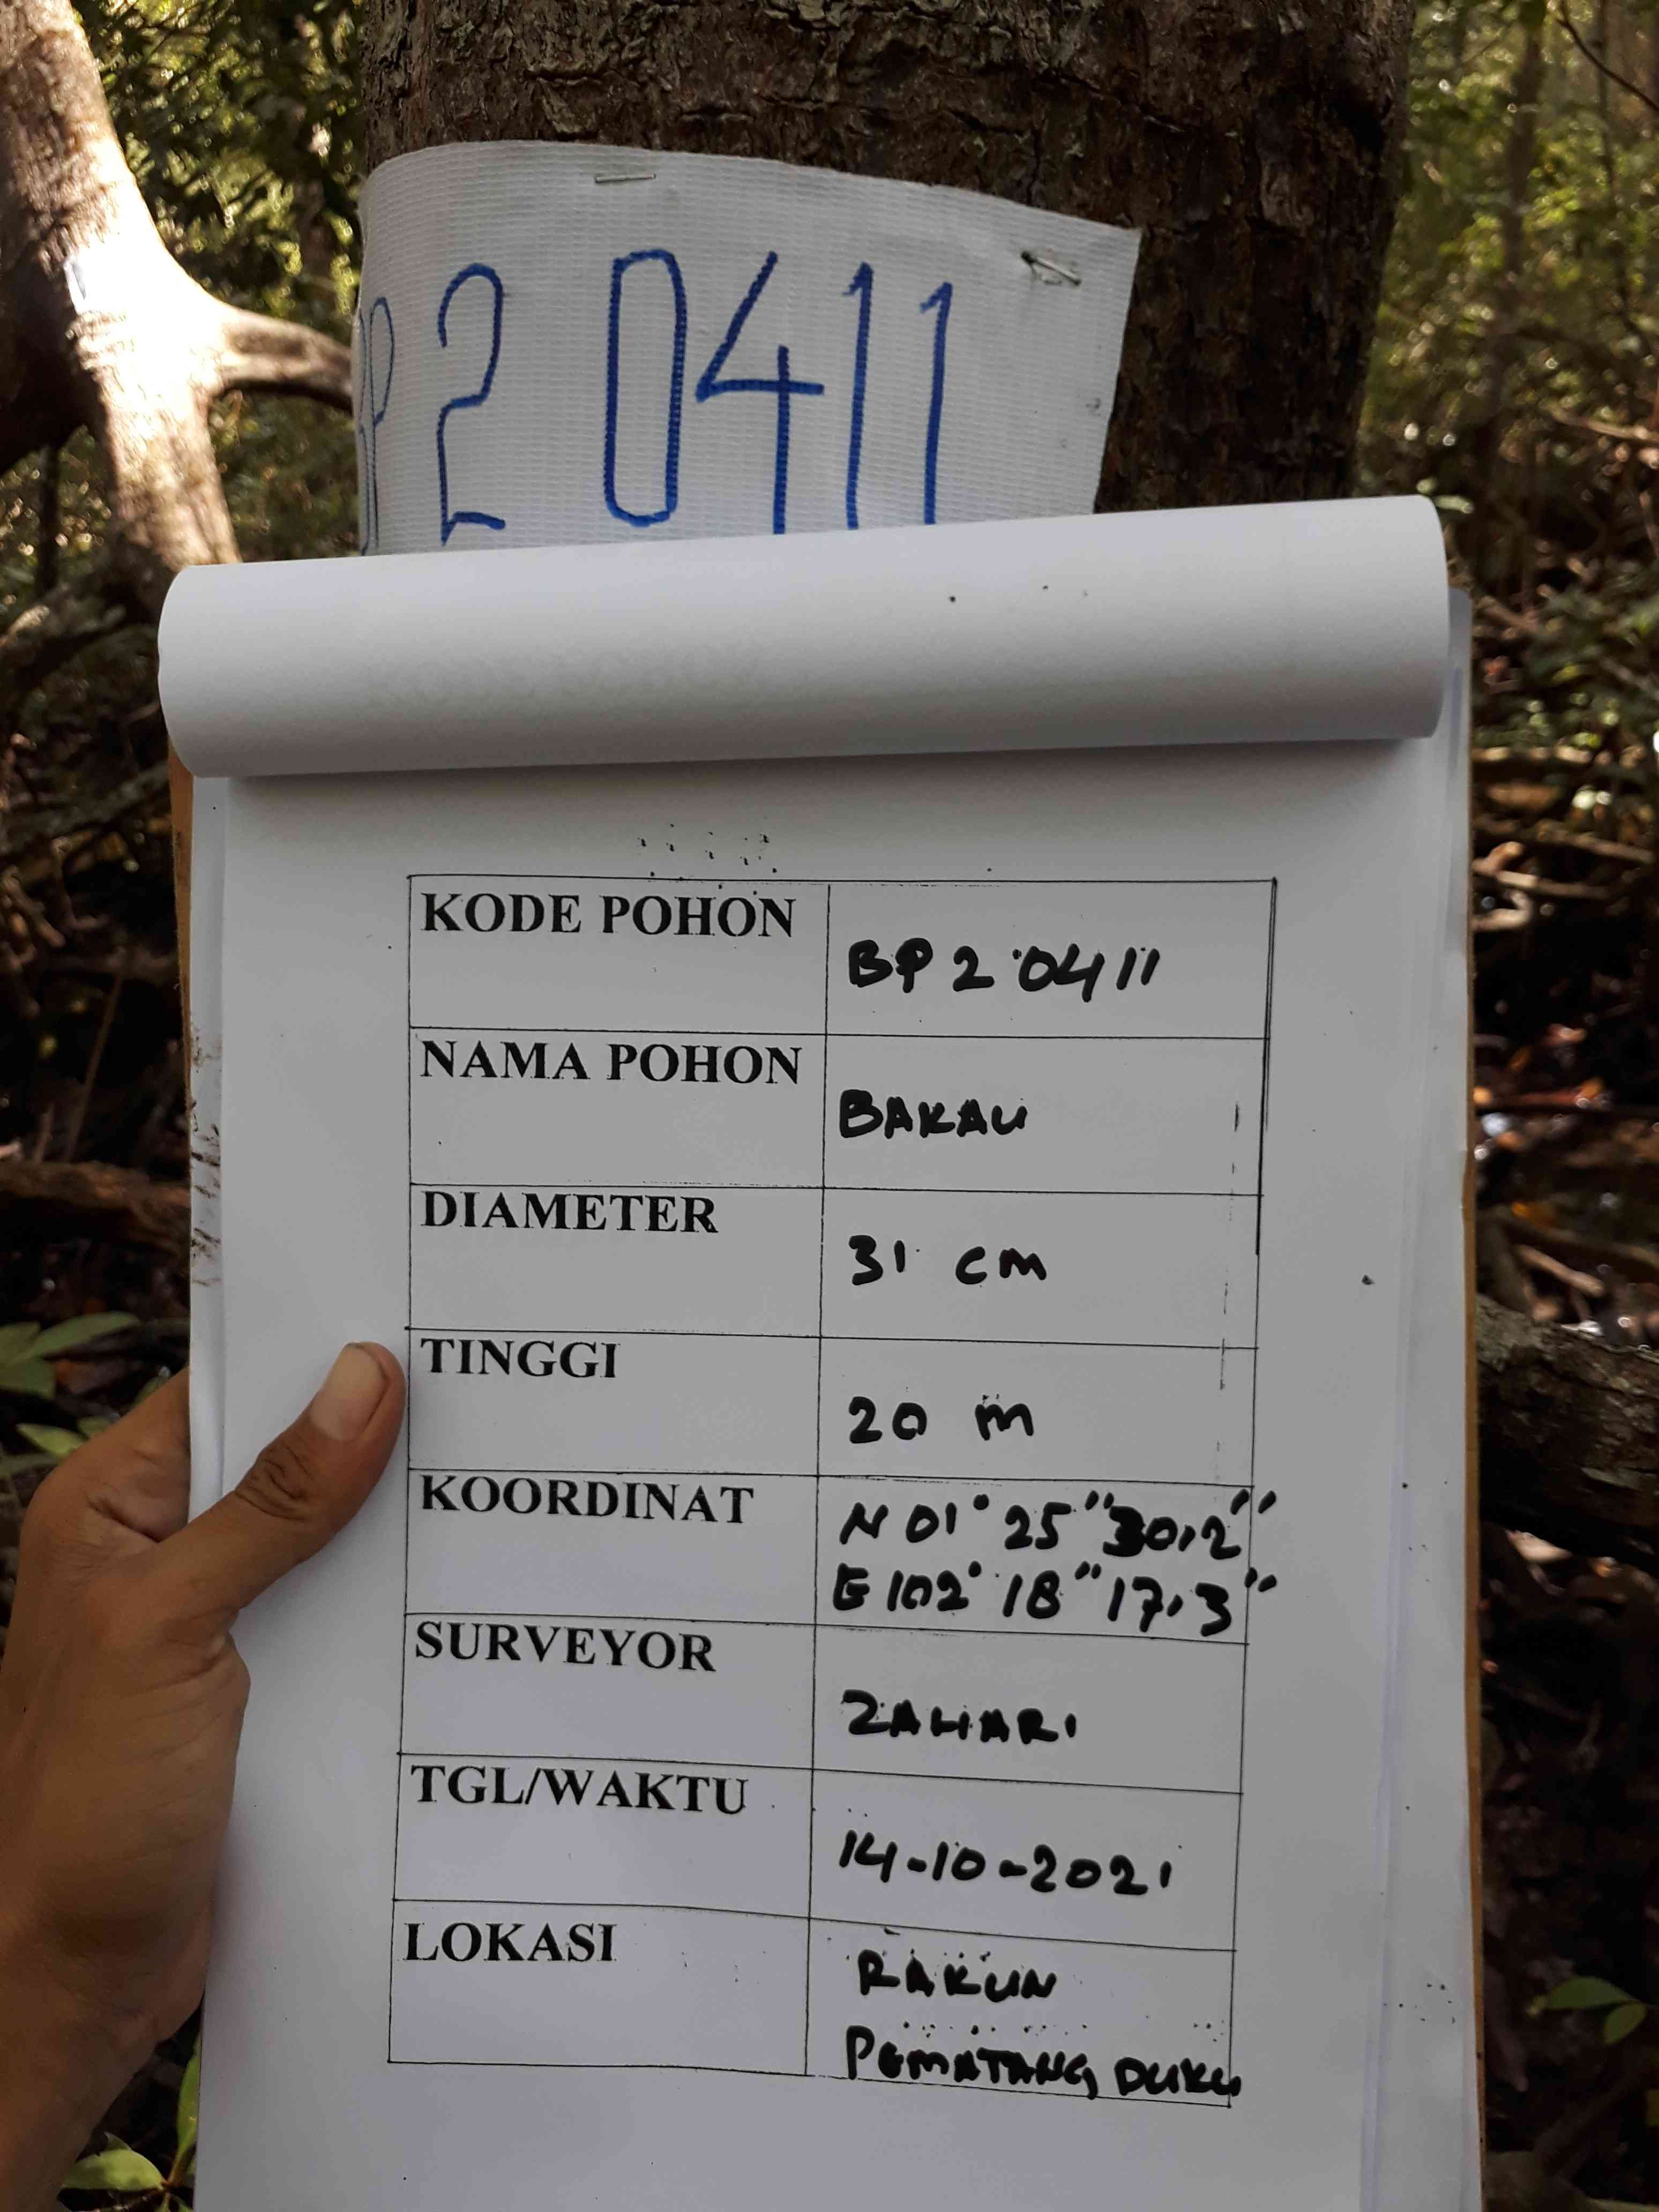 BP 2 0411
KODE POHON
BP 2 0411
NAMA POHON
BAKAU
DIAMETER
31 cm
TINGGI
20 m
KOORDINAT
N 01° 25" 30,2"
E 102° 18" 17,3"
SURVEYOR
ZALIARI
TGL/WAKTU
14-10-2021
LOKASI
RAKUN
PEMATANG DUKU